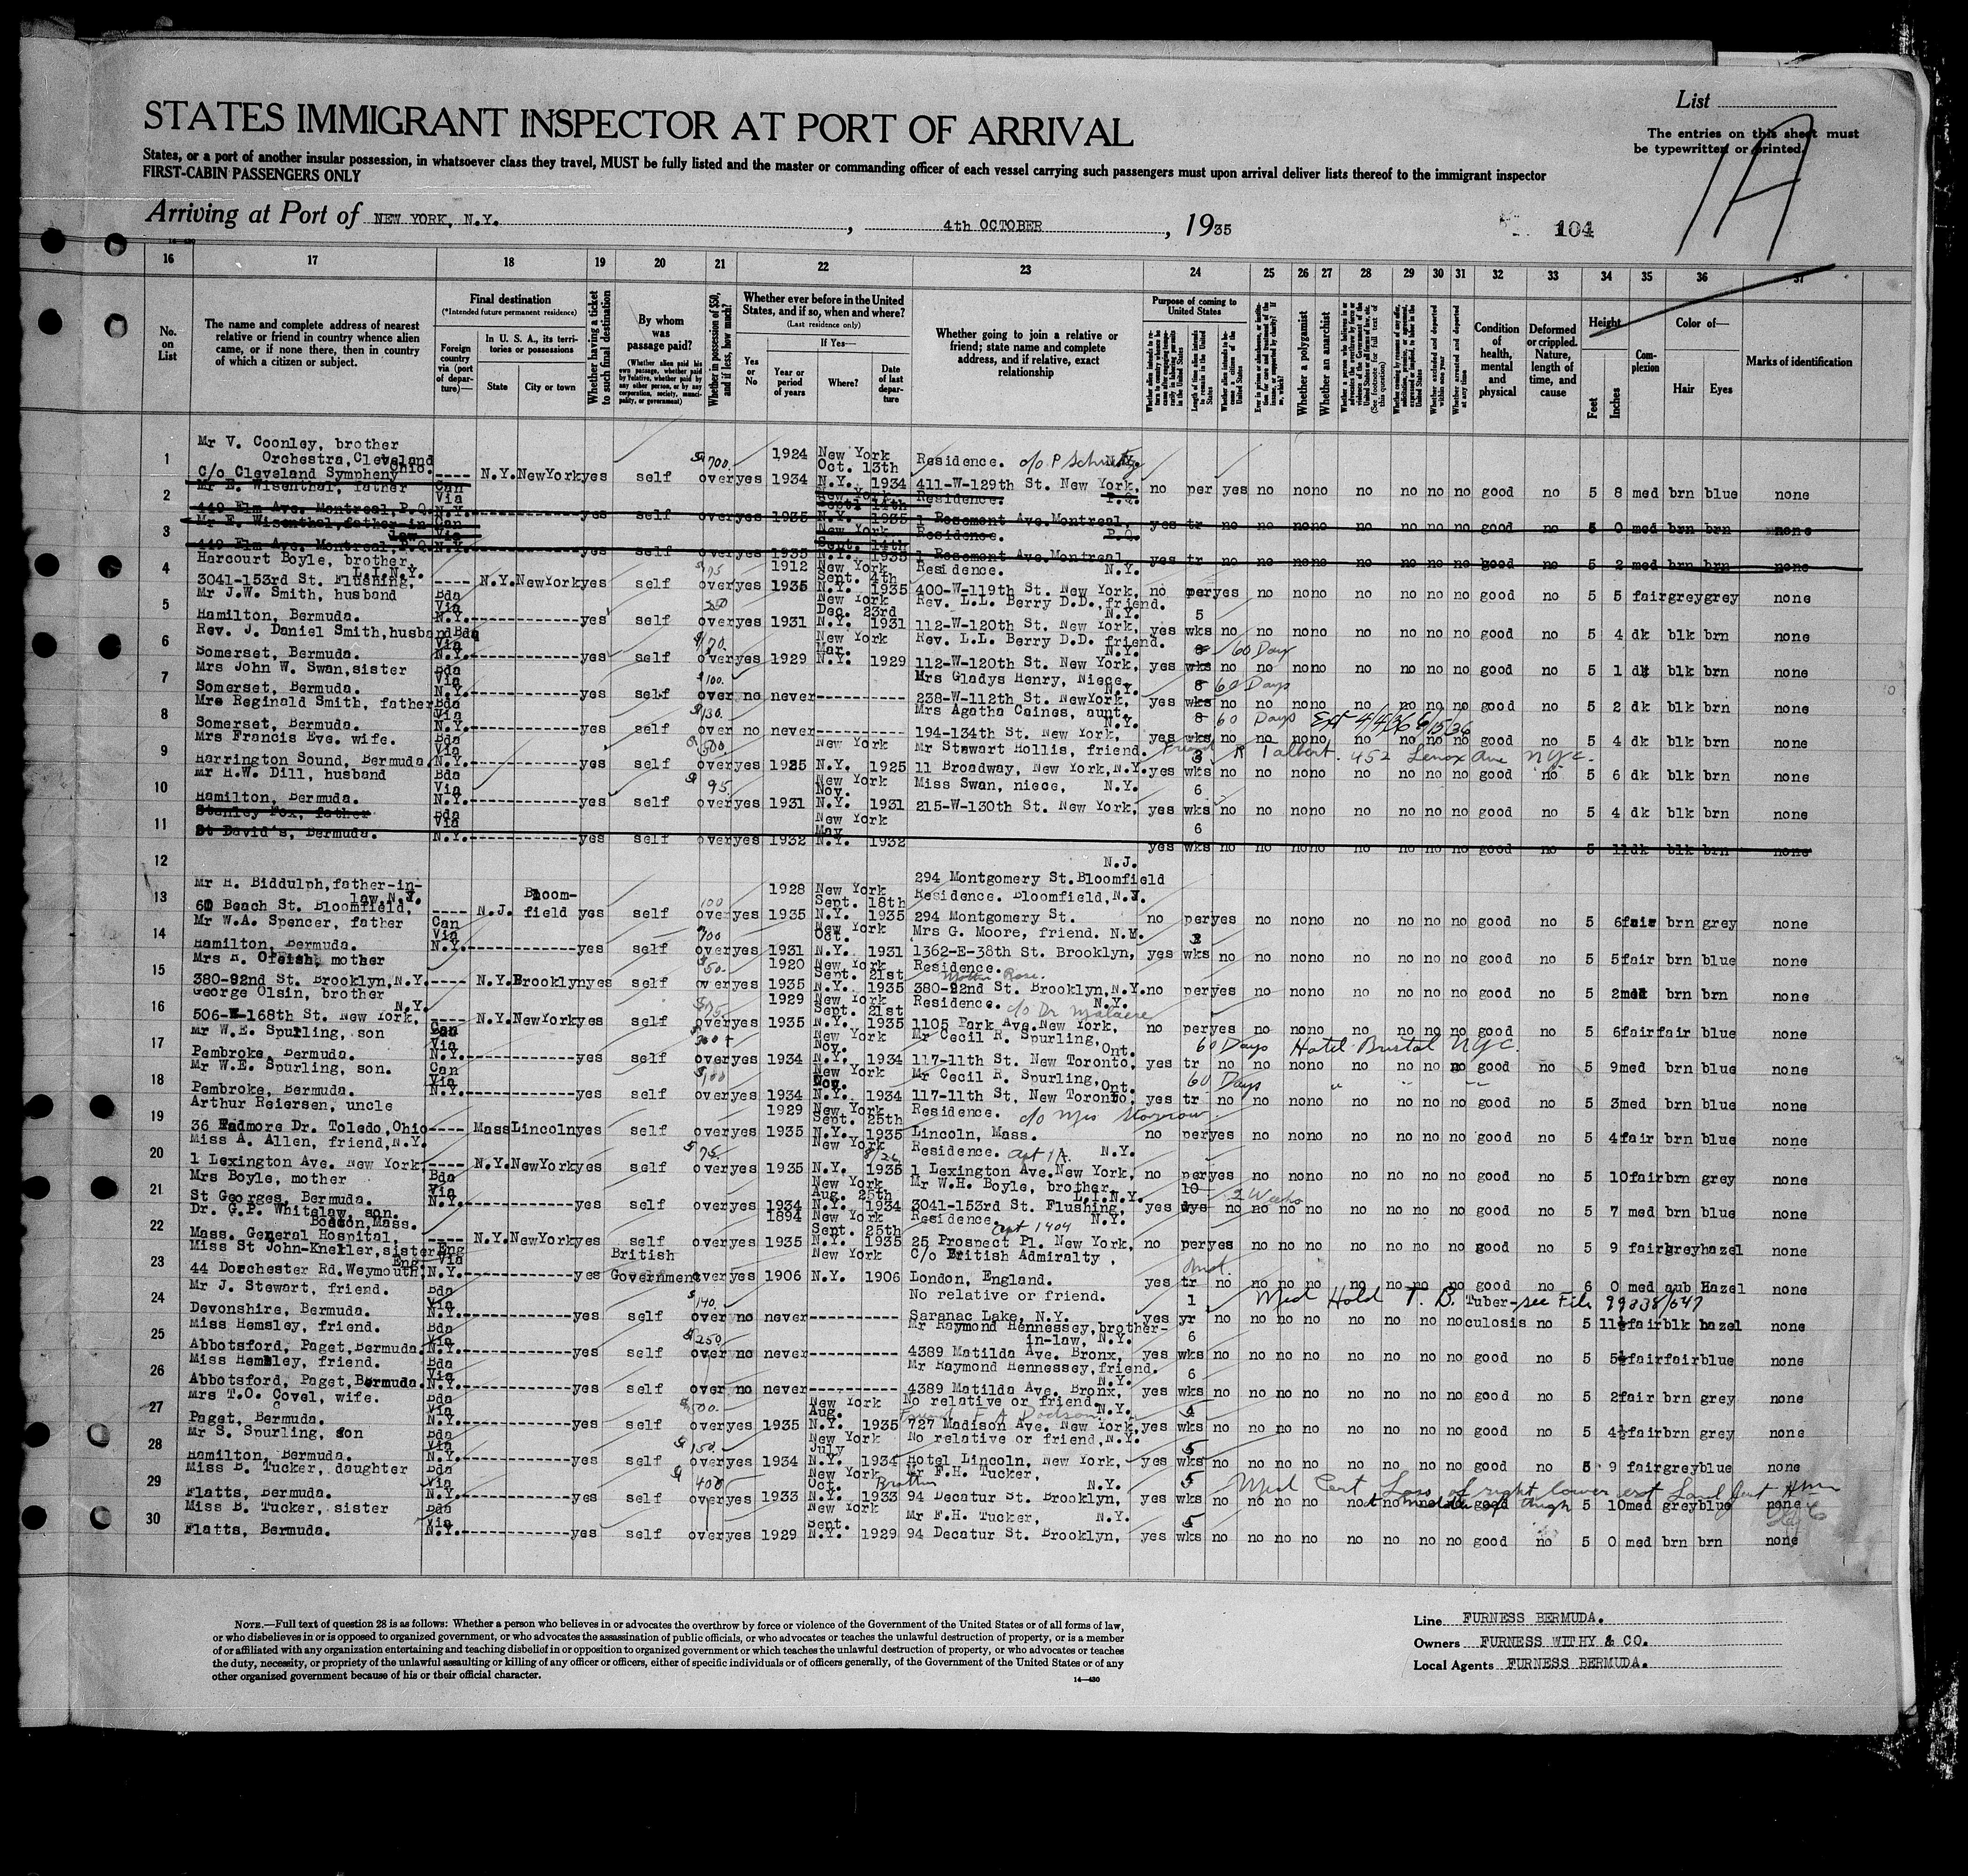 List
STATES IMMIGRANT INSPECTOR AT PORT OF ARRIVAL
The entries on this sheet must
be typewritten or printed.
1A
States, or a port of another insular possession, in whatsoever class they travel, MUST be fully listed and the master or commanding officer of each vessel carrying such passengers must upon arrival deliver lists thereof to the immigrant inspector
FIRST-CABIN PASSENGERS ONLY
Arriving at Port of NEW YORK, N.Y. , 4th OCTOBER , 1935
104
16 17 18 19 20 21 22 23 24 25 26 27 28 29 30 31 32 33 34 35 36 37
No. on List
The name and complete address of nearest relative or friend in country whence alien came, or if none there, then in country of which a citizen or subject.
Final destination
(*Intended future permanent residence)
Foreign country via (port of departure)—
In U. S. A., its territories or possessions
State City or town
Whether having a ticket to such final destination
By whom was passage paid?
(Whether alien paid his own passage, whether paid by relative, whether paid by any other person, or by any corporation, society, municipality, or government)
Whether in possession of $50, and if less, how much?
Whether ever before in the United States, and if so, when and where?
(Last residence only)
Yes or No
If Yes—
Year or period of years
Where?
Date of last departure
Whether going to join a relative or friend; state name and complete address, and if relative, exact relationship
Purpose of coming to United States
Whether a polygamist
Whether an anarchist
Condition of health, mental and physical
Deformed or crippled. Nature, length of time, and cause
Height
Feet Inches
Complexion
Color of—
Hair Eyes
Marks of identification
1 Mr V. Coonley, brother
Orchestra, Cleveland
C/o Cleveland Symphony Ohio. ---- N.Y. NewYork yes self $700. over yes 1924 1934 New York Oct. 13th N.Y. 1934 Residence. c/o P N.Y. 411-W-129th St. New York, no per yes no no no no no no no good no 5 8 med brn blue none
2 Mr E. Wisenthal, father Can Via
449 Elm Ave. Montreal, P.Q. N.Y. yes self over yes 1935 New York Sept. 14th N.Y. 1935 Residence. P.Q. 1 Rosemont Ave. Montreal, yes tr no no no no no no no no good no 5 0 med brn brn none
3 Mr E. Wisenthal, father-in-law Can Via
449 Elm Ave. Montreal, P.Q. N.Y. yes self over yes 1935 New York Sept. 14th N.Y. 1935 Residence. P.Q. 1 Rosemont Ave. Montreal yes tr no no no no no no no no good no 5 2 med brn brn none
4 Harcourt Boyle, brother,
L.I.N.Y.
3041-153rd St. Flushing, ---- N.Y. NewYork yes self $75 over yes 1912 1935 New York Sept. 4th N.Y. 1935 Residence. N.Y. 400-W-119th St. New York, no per yes no no no no no no no good no 5 5 fair grey grey none
5 Mr J.W. Smith, husband Bda Via
Hamilton, Bermuda. N.Y. yes self 250 over yes 1931 New York Dec. 23rd N.Y. 1931 Rev. L.L. Berry D.D., friend. N.Y. 112-W-120th St. New York, yes 5 wks no no no no no no no no good no 5 4 dk blk brn none
6 Rev. J. Daniel Smith, husband Bda Via
Somerset, Bermuda. N.Y. yes self $70. over yes 1929 New York Mar. N.Y. 1929 Rev. L.L. Berry D.D. friend. N.Y. 112-W-120th St. New York, yes 8 wks 60 Days no no no no no no no no good no 5 1 dk blk brn none
7 Mrs John W. Swan, sister Bda Via
Somerset, Bermuda. N.Y. yes self $100. over no never Mrs Gladys Henry, Niece, N.Y. 238-W-112th St. NewYork, yes 8 wks 60 Days no no no no no no no no good no 5 2 dk blk brn none
8 Mrs Reginald Smith, father Bda Via
Somerset, Bermuda. N.Y. yes self $130. over no never Mrs Agatha Caines, aunt, N.Y. 194-134th St. New York, yes 8 wks 60 Days Ext 4/4/36 6/15/36 no no no no no no no no good no 5 4 dk blk brn none
9 Mrs Francis Eve. wife. Bda Via
Harrington Sound, Bermuda. N.Y. yes self $500. over yes 1925 New York N.Y. 1925 Mr Stewart Hollis, friend. 11 Broadway, New York, N.Y. Friend R Talbert. 452 Lenox Ave NYC. yes 3 wks no no no no no no no no good no 5 6 dk blk brn none
10 Mr H.W. Dill, husband Bda Via
Hamilton, Bermuda. N.Y. yes self $95. over yes 1931 New York Nov. N.Y. 1931 Miss Swan, niece, N.Y. 215-W-130th St. New York, yes 6 wks no no no no no no no no good no 5 4 dk blk brn none
11 Stanley Fox, father Bda Via
St David's, Bermuda. N.Y. yes self over yes 1932 New York May N.Y. 1932 yes 6 wks no no no no no no no no good no 5 11 dk blk brn none
12 N.J.
294 Montgomery St. Bloomfield
13 Mr H. Biddulph, father-in-law, N.J.
60 Beach St. Bloomfield, ---- N.J. Bloomfield yes self 100 over yes 1928 1935 New York Sept. 18th N.Y. 1935 Residence. Bloomfield, N.J. 294 Montgomery St. no per yes no no no no no no no good no 5 6 fair brn grey none
14 Mr W.A. Spencer, father Can Via
Hamilton, Bermuda. N.Y. yes self $100 over yes 1931 New York Oct. N.Y. 1931 Mrs G. Moore, friend. N.Y. 1362-E-38th St. Brooklyn, yes wks no no no no no no no no good no 5 5 fair brn blue none
15 Mrs R. Oleish, mother
380-92nd St. Brooklyn, N.Y. ---- N.Y. Brooklyn yes self $50. over yes 1920 1935 New York Sept. 21st N.Y. 1935 Residence. Mother Rose. 380-92nd St. Brooklyn, N.Y. no per yes no no no no no no no good no 5 2 med brn brn none
16 George Olsin, brother
N.Y.
506-W-168th St. New York, ---- N.Y. NewYork yes self $75. over yes 1929 1935 New York Sept. 21st N.Y. 1935 Residence. c/o Dr N.Y. 1105 Park Ave. New York, no per yes no no no no no no no good no 5 6 fair fair blue none
17 Mr W.E. Spurling, son Can Via
Pembroke, Bermuda. N.Y. yes self over yes 1934 New York Nov. N.Y. 1934 Mr Cecil R. Spurling, Ont. 117-11th St. New Toronto, yes tr 60 Days Hotel Bristol NYC. no no no no no no no no good no 5 9 med brn blue none
18 Mr W.E. Spurling, son. Can Via
Pembroke, Bermuda. N.Y. yes self $100 over yes 1934 New York Nov. N.Y. 1934 Mr Cecil R. Spurling, Ont. 117-11th St. New Toronto, yes tr 60 Days " " " no no no no no no no no good no 5 3 med brn blue none
19 Arthur Reiersen, uncle
36 Fadmore Dr. Toledo, Ohio ---- Mass Lincoln yes self over yes 1929 1935 New York Sept. 25th N.Y. 1935 Residence. c/o Mrs Storrow Lincoln, Mass. no per yes no no no no no no no good no 5 4 fair brn blue none
20 Miss A. Allen, friend, N.Y.
1 Lexington Ave. New York, ---- N.Y. NewYork yes self $75. over yes 1935 New York 8/26 N.Y. 1935 Residence. apt 1A. N.Y. 1 Lexington Ave. New York, no per yes no no no no no no no good no 5 10 fair brn grey none
21 Mrs Boyle, mother Bda Via
St Georges, Bermuda. N.Y. yes self over yes 1934 New York Aug. 25th N.Y. 1934 Mr W.H. Boyle, brother, L.I.N.Y. 3041-153rd St. Flushing, yes 10 dys 2 Weeks no no no no no no no no good no 5 7 med brn blue none
22 Dr. G.P. Whitelaw, son.
Boston, Mass.
Mass. General Hospital, ---- N.Y. NewYork yes self over yes 1894 1935 New York Sept. 25th N.Y. 1935 Residence. apt 1404 N.Y. 25 Prospect Pl. New York, no per yes no no no no no no no good no 5 9 fair grey hazel none
23 Miss St John-Kneller, sister Eng Via
Eng.
44 Dorchester Rd. Weymouth, N.Y. yes British Government over yes 1906 New York N.Y. 1906 C/o British Admiralty, London, England. yes tr no no no no no no no no good no 6 0 med aub Hazel none
24 Mr J. Stewart, friend. Bda Via
Devonshire, Bermuda. N.Y. yes self $140. over no never No relative or friend. Saranac Lake, N.Y. yes 1 yr Med Hold T. B. Tuber- see File 99838/647 no no no no no no no no culosis no 5 11½ fair blk hazel none
25 Miss Hemsley, friend. Bda Via
Abbotsford, Paget, Bermuda. N.Y. yes self $250 over no never Mr Raymond Hennessey, brother-in-law, N.Y. 4389 Matilda Ave. Bronx, yes 6 wks no no no no no no no no good no 5 5½ fair fair blue none
26 Miss Hemsley, friend. Bda Via
Abbotsford, Paget, Bermuda. N.Y. yes self over no never Mr Raymond Hennessey, friend. N.Y. 4389 Matilda Ave. Bronx, yes 6 wks no no no no no no no no good no 5 2 fair brn grey none
27 Mrs T.O. Covel, wife. Bda Via
Paget, Bermuda. N.Y. yes self $500. over yes 1935 New York Aug. N.Y. 1935 No relative or friend, N.Y. Friend F A Dodson 727 Madison Ave. New York, yes 4 wks no no no no no no no no good no 5 4½ fair brn grey none
28 Mr S. Spurling, son Bda Via
Hamilton, Bermuda. N.Y. yes self $150. over yes 1934 New York July N.Y. 1934 No relative or friend, N.Y. Hotel Lincoln, New York, yes 5 wks no no no no no no no no good no 5 9 fair grey blue none
29 Miss B. Tucker, daughter Bda Via
Flatts, Bermuda. N.Y. yes self $400 over yes 1933 New York Oct. N.Y. 1933 Brother Mr F.H. Tucker, N.Y. 94 Decatur St. Brooklyn, yes 5 wks Med Cert Loss of right lower ext at middle of thigh no no no no no no no no good 5 10 med grey blue none
30 Miss B. Tucker, sister Bda Via
Flatts, Bermuda. N.Y. yes self over yes 1929 New York Sept. N.Y. 1929 Mr F.H. Tucker, N.Y. 94 Decatur St. Brooklyn, yes 5 wks no no no no no no no no good no 5 0 med brn brn none
NOTE.—Full text of question 28 is as follows: Whether a person who believes in or advocates the overthrow by force or violence of the Government of the United States or of all forms of law,
or who disbelieves in or is opposed to organized government, or who advocates the assassination of public officials, or who advocates or teaches the unlawful destruction of property, or is a member
of or affiliated with any organization entertaining and teaching disbelief in or opposition to organized government or which teaches the unlawful destruction of property, or who advocates or teaches
the duty, necessity, or propriety of the unlawful assaulting or killing of any officer or officers, either of specific individuals or of officers generally, of the Government of the United States or of any
other organized government because of his or their official character.
14—430
Line FURNESS BERMUDA.
Owners FURNESS WITHY & CO.
Local Agents FURNESS BERMUDA.